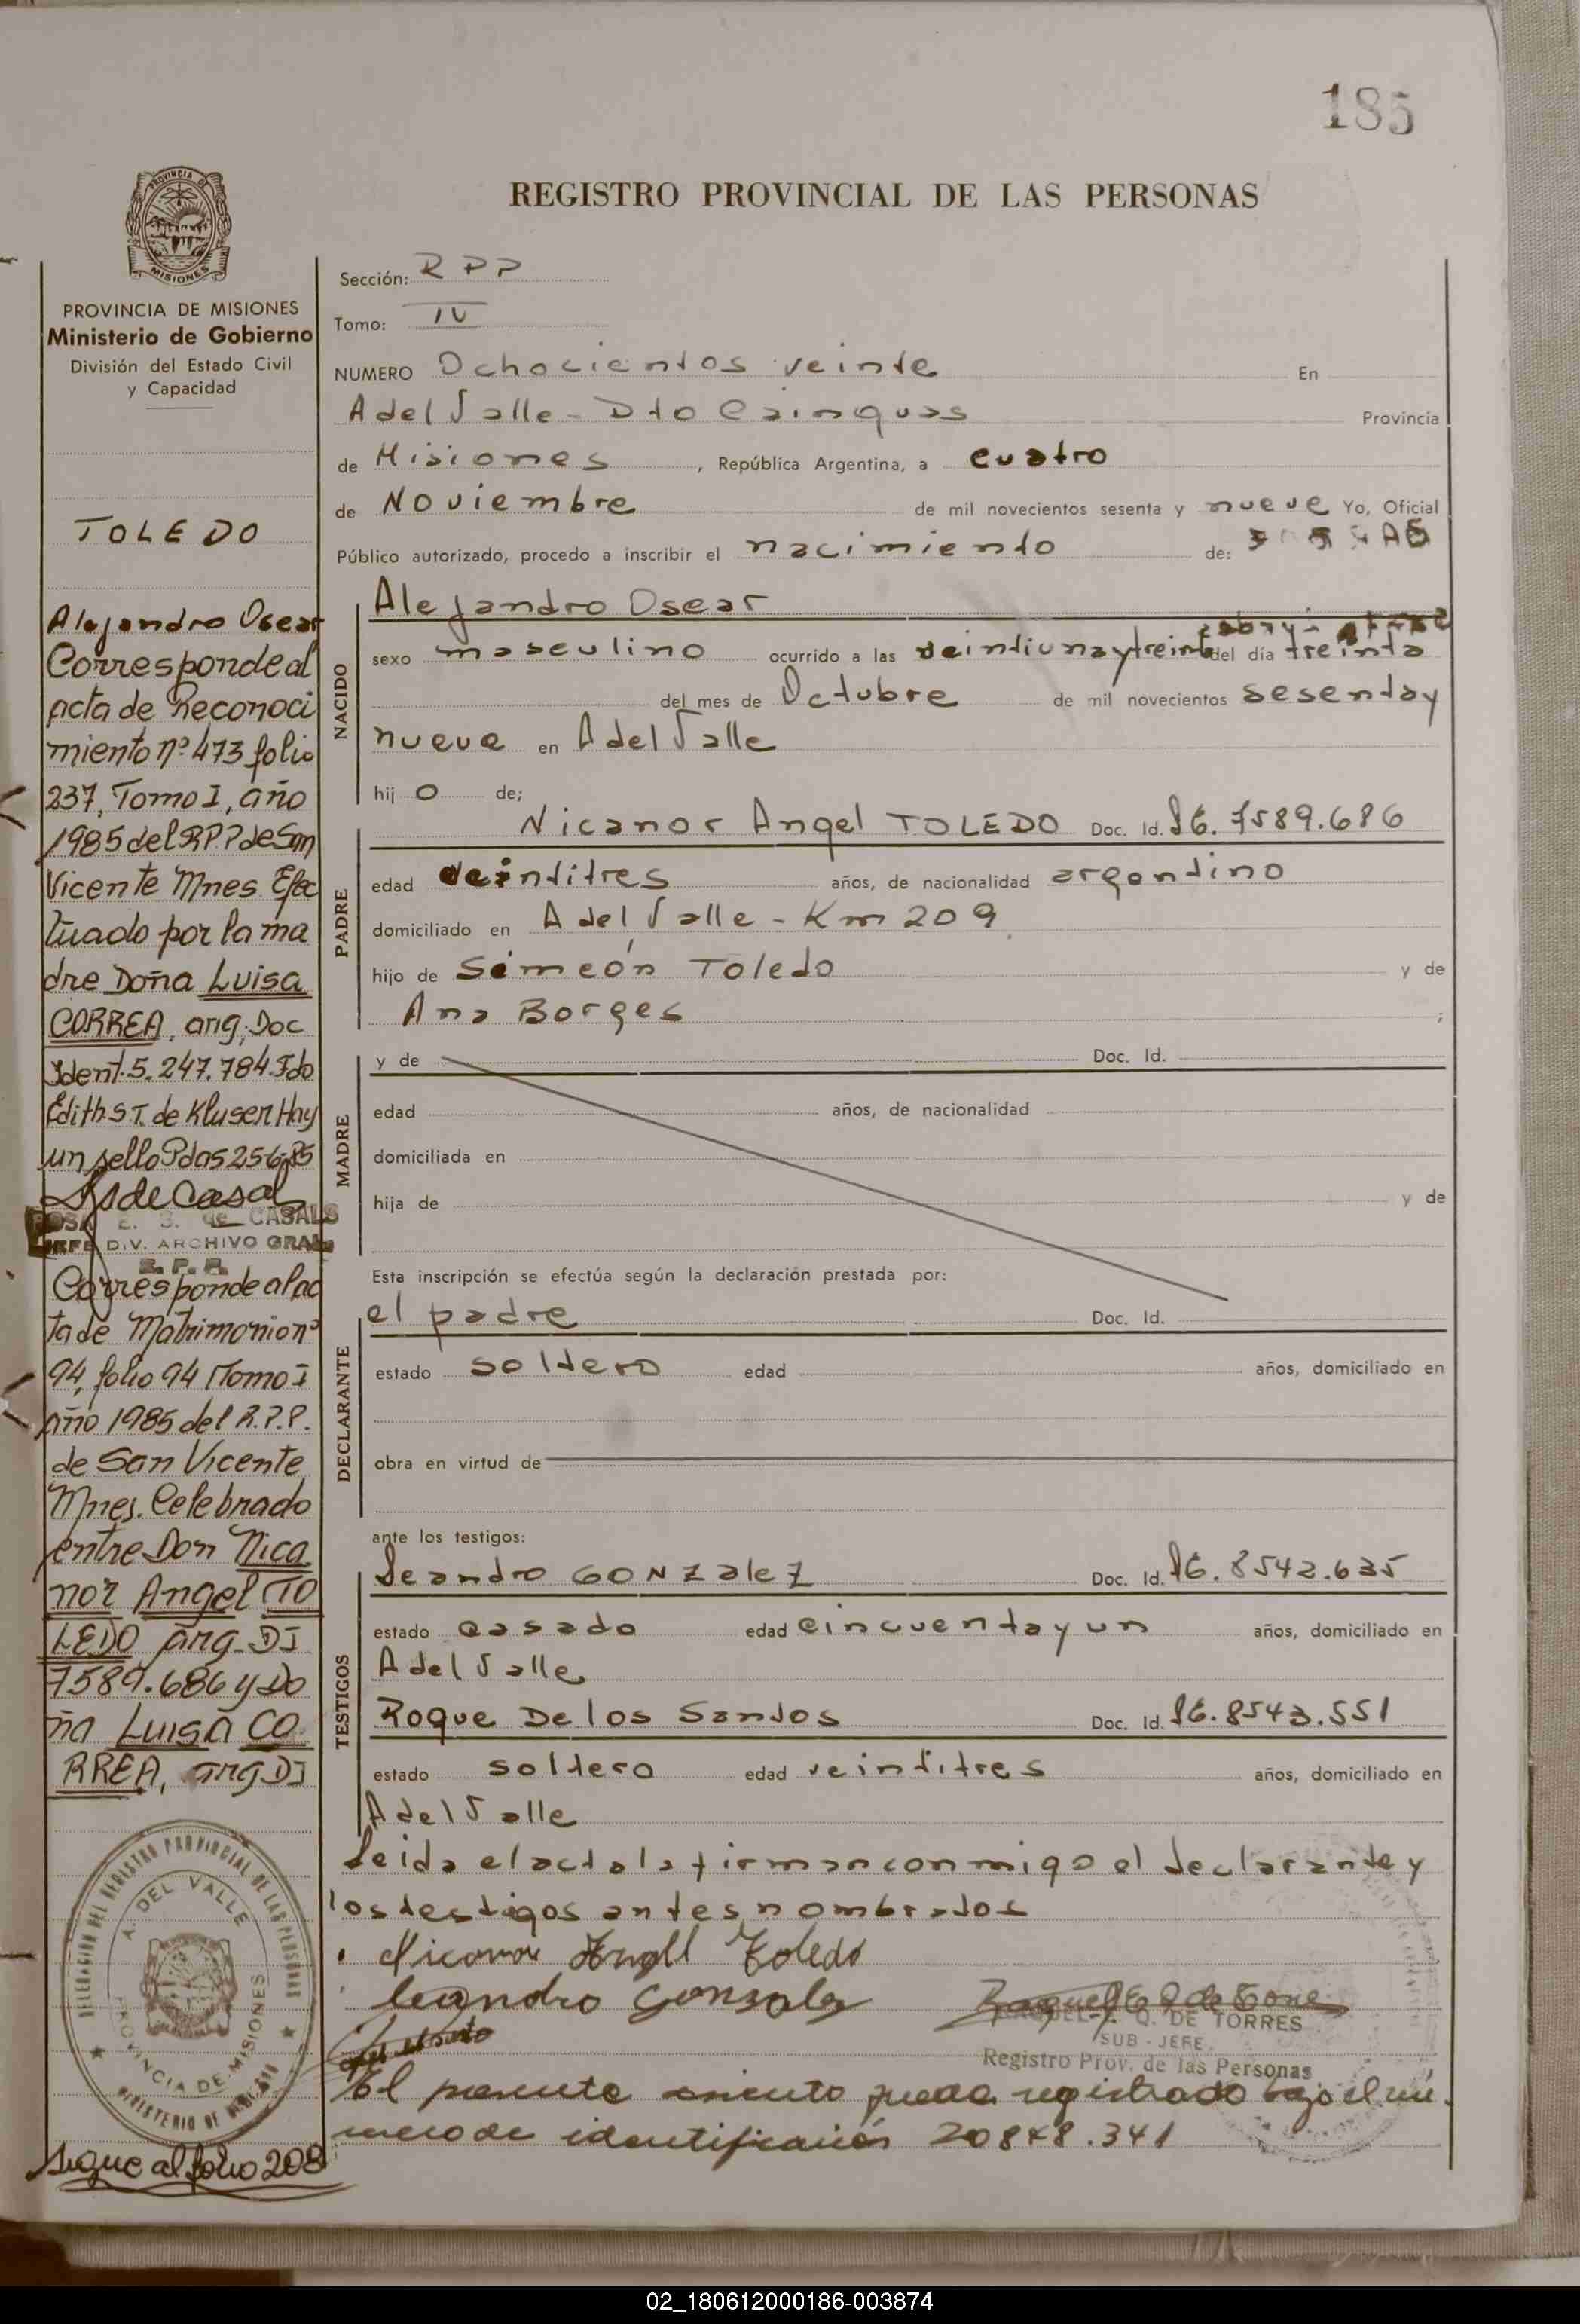 185
REGISTRO PROVINCIAL DE LAS PERSONAS
PROVINCIA DE
MISIONES
PROVINCIA DE MISIONES
Ministerio de Gobierno
División del Estado Civil
y Capacidad
TOLEDO
Alejandro Oscar
Corresponde al
acta de Reconoci
miento nº 473 folio
237, Tomo I, año
1985 del R.P.P de San
Vicente Mnes. Efec
tuado por la ma
dre Doña Luisa
CORREA, arg. Doc
Ident. 5.247.784. Fdo
Edith S T. de Kluser Hay
un sello Pdas 25-6-85
ROSA E. S. de CASALS
JEFE DIV. ARCHIVO GRAL.
R. P. P.
Corresponde al ac
ta de Matrimonio nº
94, folio 94 Tomo I
año 1985 del R.P.P.
de San Vicente
Mnes. Celebrado
entre Don Nica
nor Angel TO
LEDO arg. DI
7589.686 y Do
ña Luisa CO
RREA, arg DI
DELEGACION DEL REGISTRO PROVINCIAL DE LAS PERSONAS
A. DEL VALLE
PROVINCIA DE MISIONES
MINISTERIO DE GOBIERNO
sigue al folio 208
Sección: RPP
Tomo: IV
NUMERO Ochocientos veinte En
A del Valle - Dto Cainguas Provincia
de Misiones, República Argentina, a cuatro
de Noviembre de mil novecientos sesenta y nueve Yo, Oficial
Público autorizado, procedo a inscribir el nacimiento de:
NACIDO
Alejandro Oscar
sexo masculino ocurrido a las veintiuna y treinta del día treinta
del mes de Octubre de mil novecientos sesenta y
nueve en A del Valle
hij o de;
PADRE
Nicanor Angel TOLEDO Doc. Id. L6. 7589.686
edad veintitres años, de nacionalidad argentino
domiciliado en A del Valle - Km 209
hijo de Simeón Toledo y de
Ana Borges ;
MADRE
y de Doc. Id.
edad años, de nacionalidad
domiciliada en
hija de y de
Esta inscripción se efectúa según la declaración prestada por:
DECLARANTE
el padre Doc. Id.
estado soltero edad años, domiciliado en
obra en virtud de
ante los testigos:
TESTIGOS
Leandro GONZalez Doc. Id. L6. 8542.635
estado casado edad cincuenta y un años, domiciliado en
A del Valle
Roque De los Santos Doc. Id. L6. 8543.551
estado soltero edad veintitres años, domiciliado en
A del Valle
Leida el acta la firman conmigo el declarante y
los testigos antes nombrados
Nicanor Angel Toledo
Leandro Gonzalez
Q. DE TORRES
SUB - JEFE
Registro Prov. de las Personas
El presente asiento queda registrado bajo el nú
mero de identificación 20848.341
02_180612000186-003874